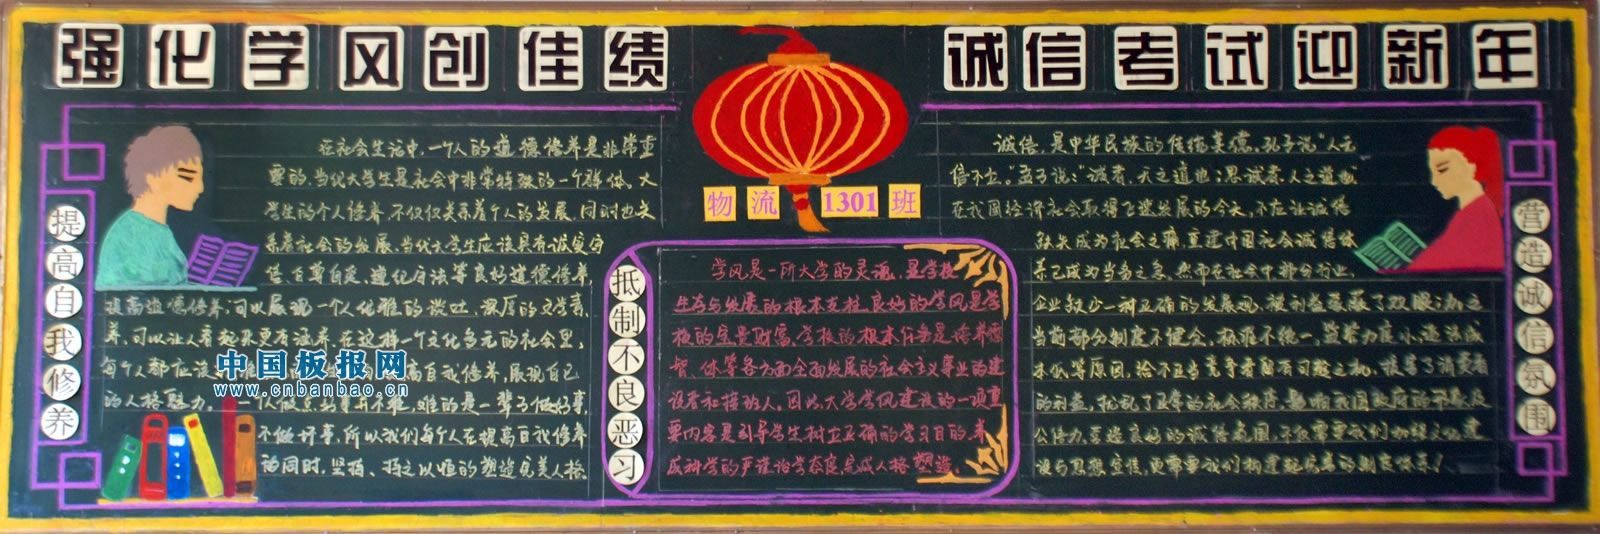 强化学风创佳绩
诚信考试迎新年
物流1301班
提高自我修养
在社会生活中，一个人的道德修养是非常重
要的，当代大学生是社会中非常特殊的一个群体，大
学生的个人修养，不仅仅关系着个人的发展，同时也关
系着社会的发展，当代大学生应该具有诚实守
信、自尊自爱、遵纪守法等良好道德修养，
提高道德修养，可以展现一个人优雅的谈吐，深厚的文学素
养，可以让人看起来更有涵养，在这样一个文化多元的社会里，
每个人都应该 高自我修养，展现自己
的人格魅力。 人做点好事并不难，难的是一辈子做好事，
不做坏事，所以我们每个人在提高自我修养
的同时，坚持、持之以恒的塑造完美人格
中国板报网
www.cnbanbao.cn
抵制不良恶习
学风是一所大学的灵魂，是学校
生存与发展的根本支柱，良好的学风是学
校的宝贵财富，学校的根本任务是培养德
智、体等各方面全面发展的社会主义事业的建
设者和接班人。因此，大学学风建设的一项重
要内容是引导学生树立正确的学习目的，养
成科学的严谨治学态度，完成人格塑造。
诚信，是中华民族的传统美德，孔子说“人无
信不立。”孟子说：“诚者，天之道也；思诚者，人之道也”
在我国经济社会取得飞速发展的今天，不应让诚信
缺失成为社会之痛，重建中国社会诚信体
系已成为当务之急，然而在社会中部分行业、
企业缺少一种正确的发展观，被利益蒙蔽了双眼；加之
当前部分制度不健全，标准不统一，监管力度小，违法成
本低等原因，给不正当竞争者留有可趁之机，损害了消费者
的利益，扰乱了正常的社会秩序，影响我国政府的
公信力，营造良好的诚信氛围，不仅需要我们加强
设与思想宣传，更需要我们构建起信息的制度体系！
营造诚信氛围